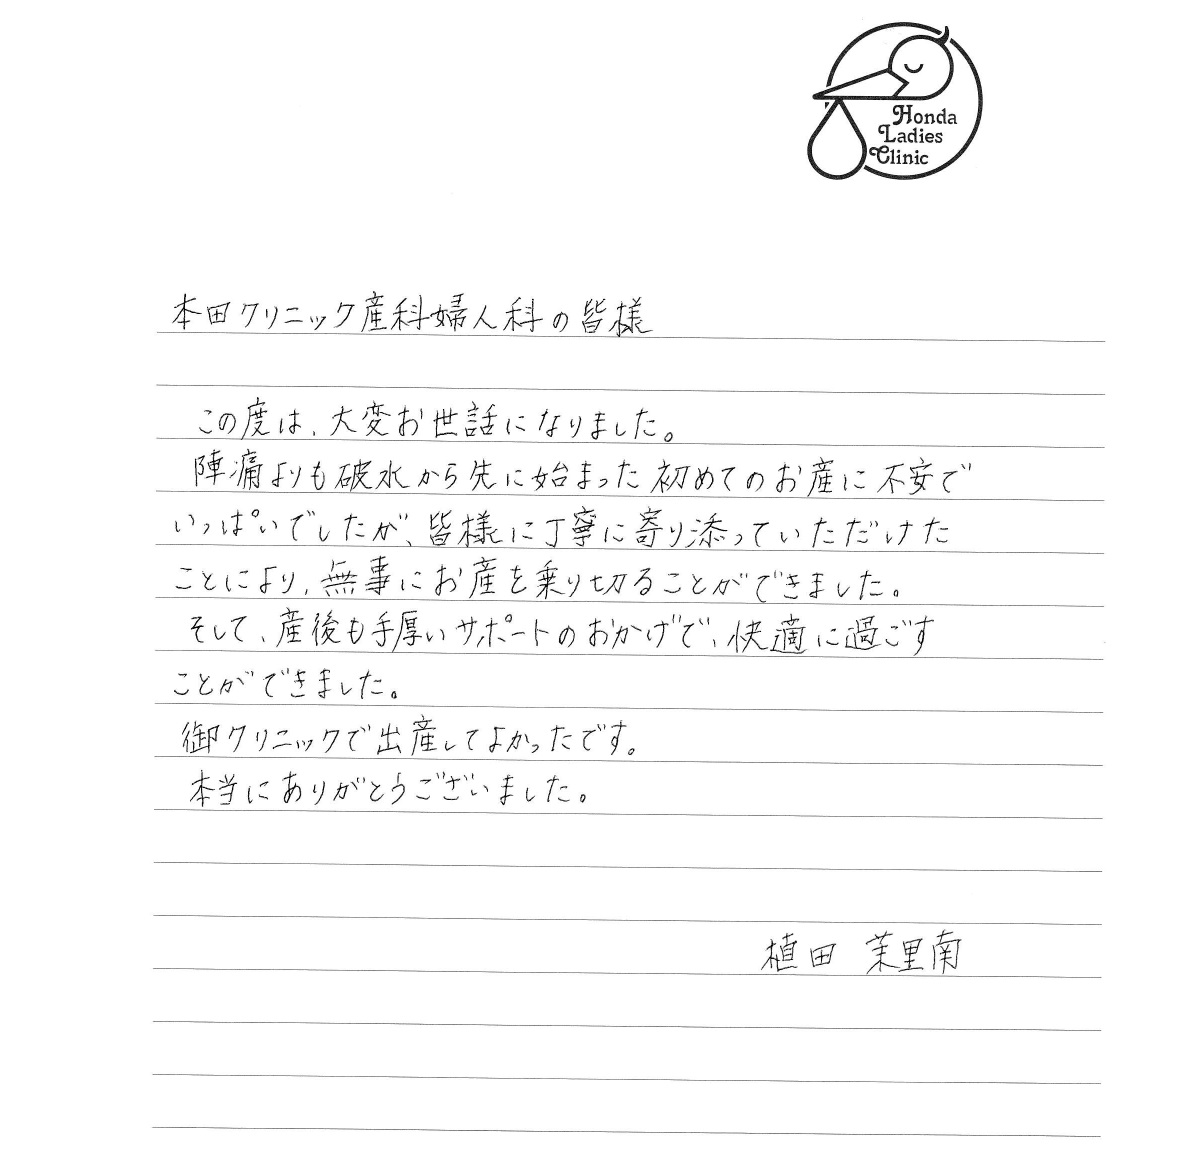 Honda
Ladies
Clinic
本田クリニック産科婦人科の皆様
この度は、大変お世話になりました。
陣痛よりも破水から先に始まった初めてのお産に不安で
いっぱいでしたが、皆様に丁寧に寄り添っていただけた
ことにより、無事にお産を乗り切ることができました。
そして、産後も手厚いサポートのおかげで、快適に過ごす
ことができました。
御クリニックで出産してよかったです。
本当にありがとうございました。
植田 茉里南